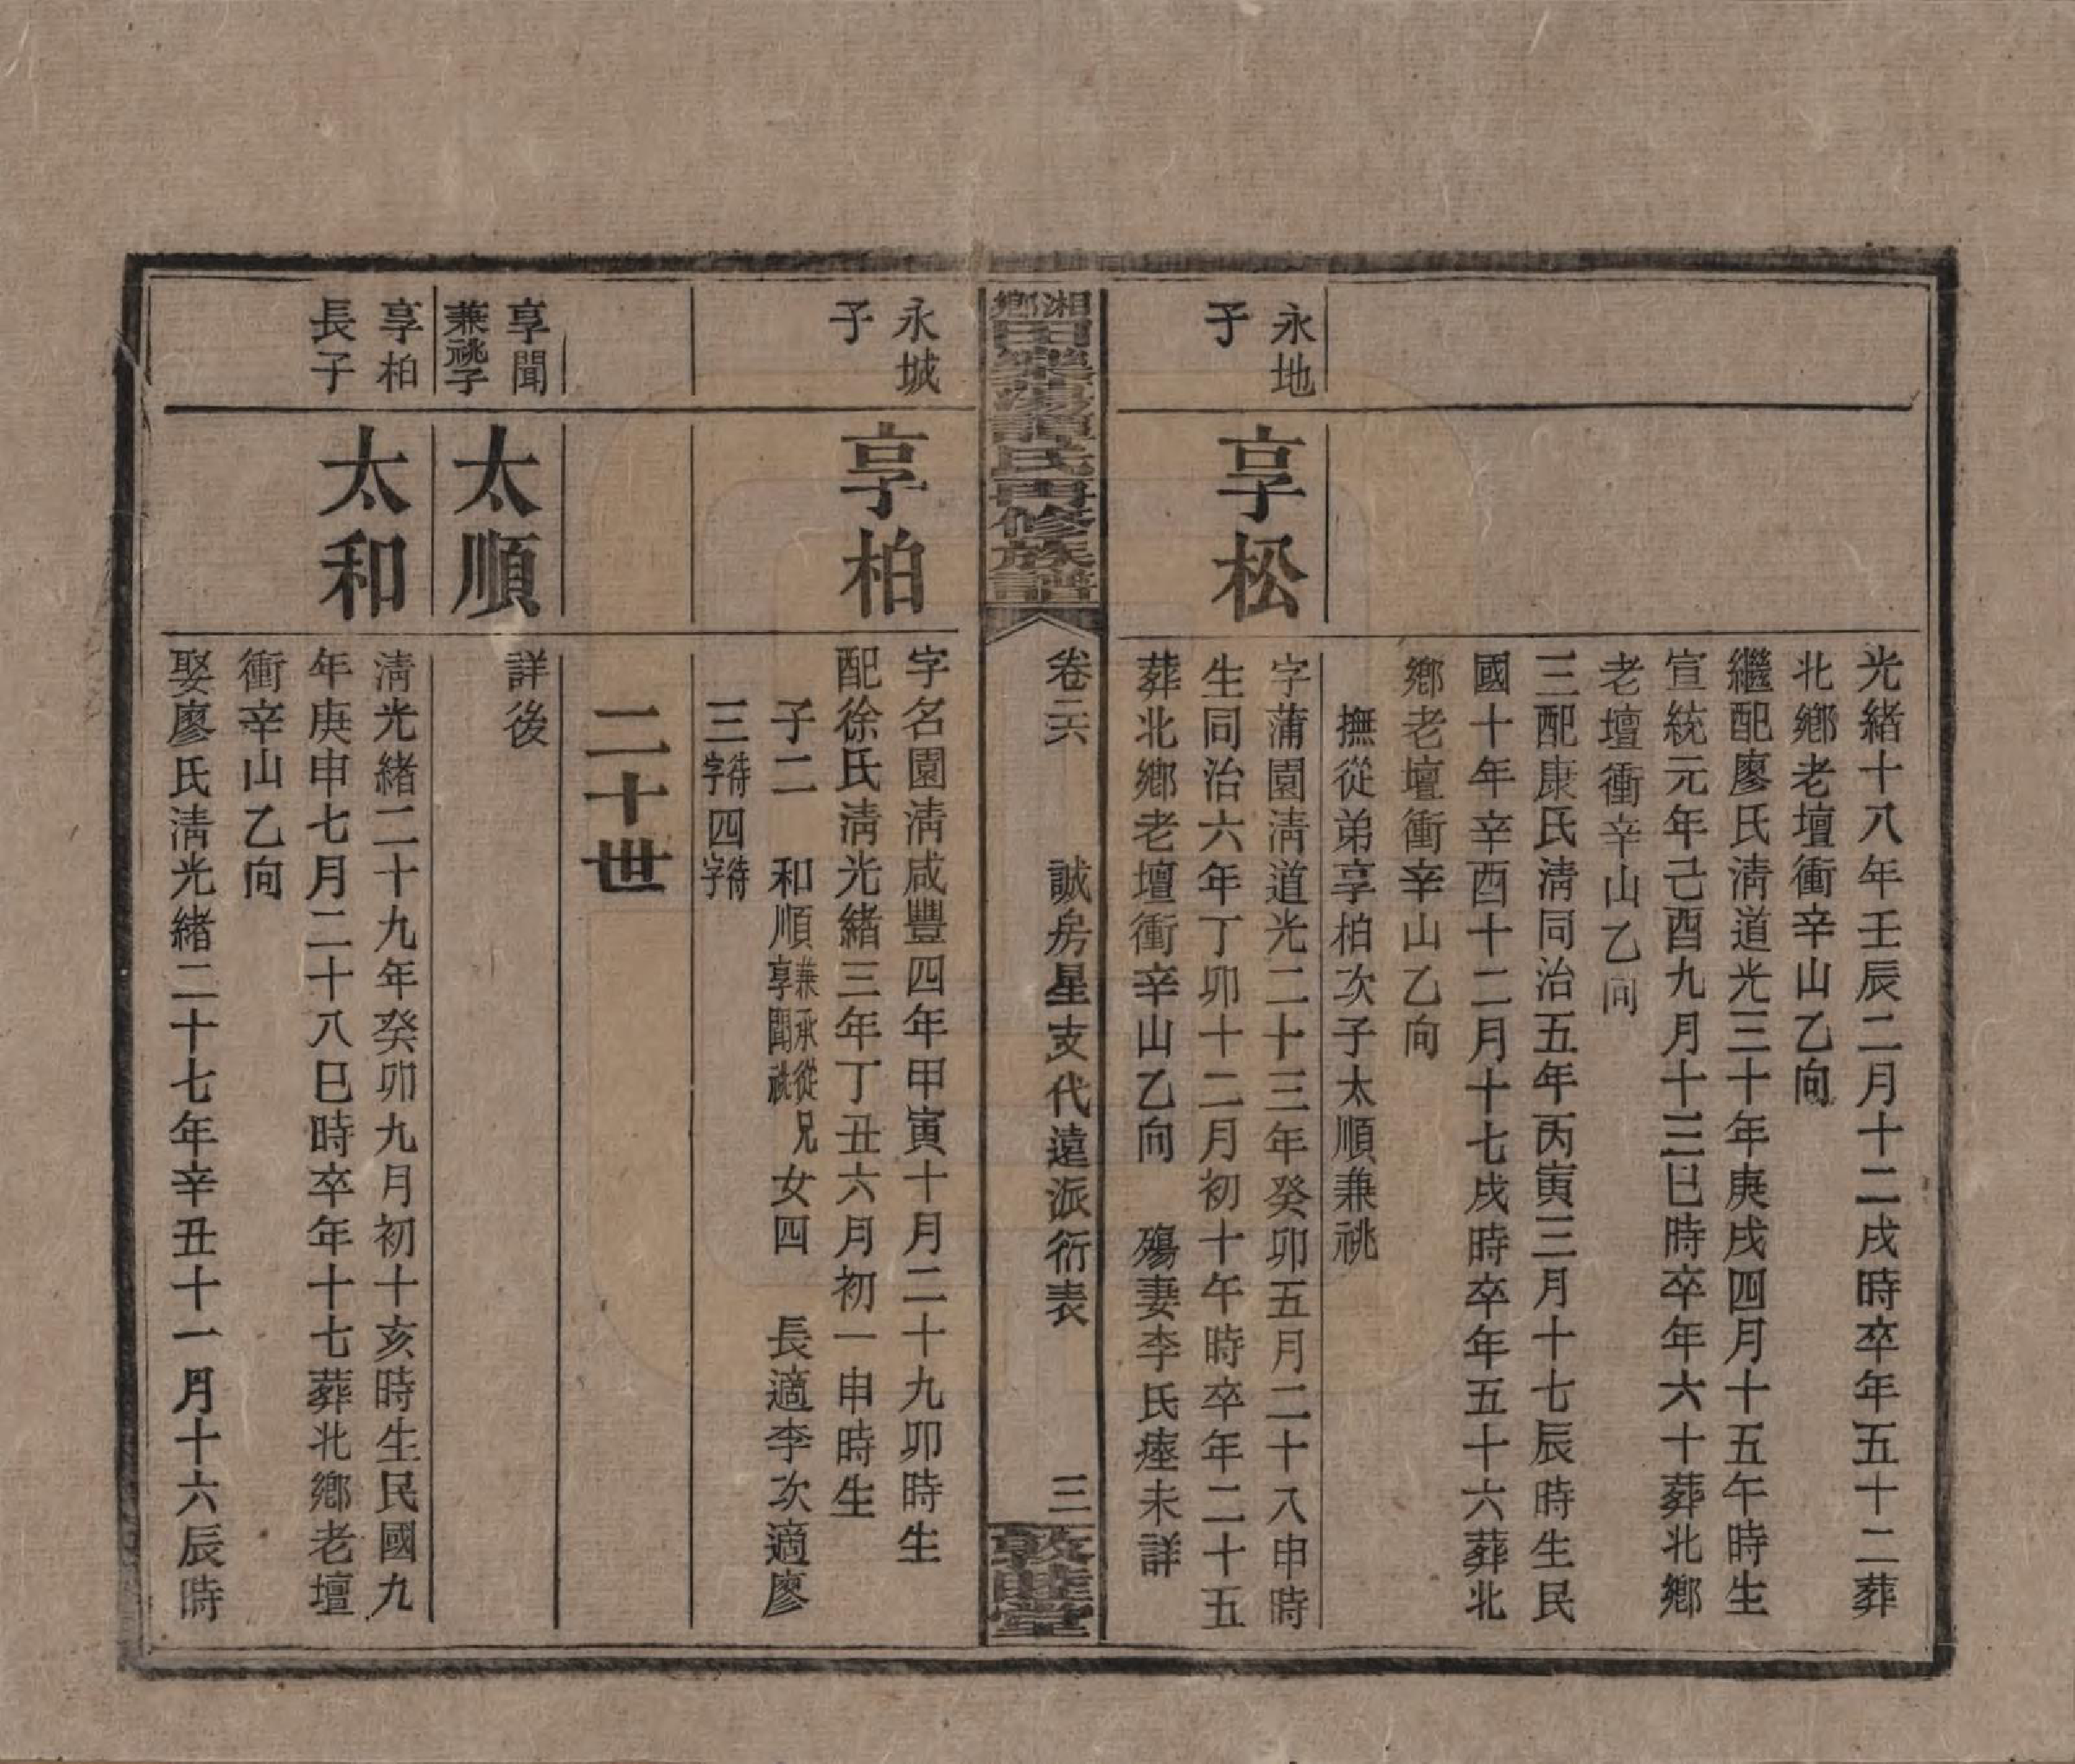 光緒十八年壬辰二月十二戌時卒年五十二葬
北鄉老壇衝辛山乙向
繼配廖氏淸道光三十年庚戌四月十五午時生
宣統元年己酉九月十三巳時卒年六十葬北鄉
老壇衝辛山乙向
三配康氏淸同治五年丙寅三月十七辰時生民
國十年辛酉十二月十七戌時卒年五十六葬北
鄉老壇衝辛山乙向
撫從弟享柏次子太順兼祧
永地
子
享松
字蒲園淸道光二十三年癸卯五月二十八申時
生同治六年丁卯十二月初十午時卒年二十五
葬北鄉老壇衝辛山乙向 殤妻李氏瘞未詳
湘鄉
田樂蕩譚氏四修族譜
卷二六 誠房星支代遠派衍表 三
敦睦堂
永城
子
享柏
字名園淸咸豐四年甲寅十月二十九卯時生
配徐氏淸光緒三年丁丑六月初一申時生
子二 和順兼承從兄享聞祧 女四 長適李次適廖
三待字四待字
二十世
享聞
兼祧子
太順
詳後
享柏
長子
太和
淸光緒二十九年癸卯九月初十亥時生民國九
年庚申七月二十八巳時卒年十七葬北鄉老壇
衝辛山乙向
娶廖氏淸光緒二十七年辛丑十一月十六辰時